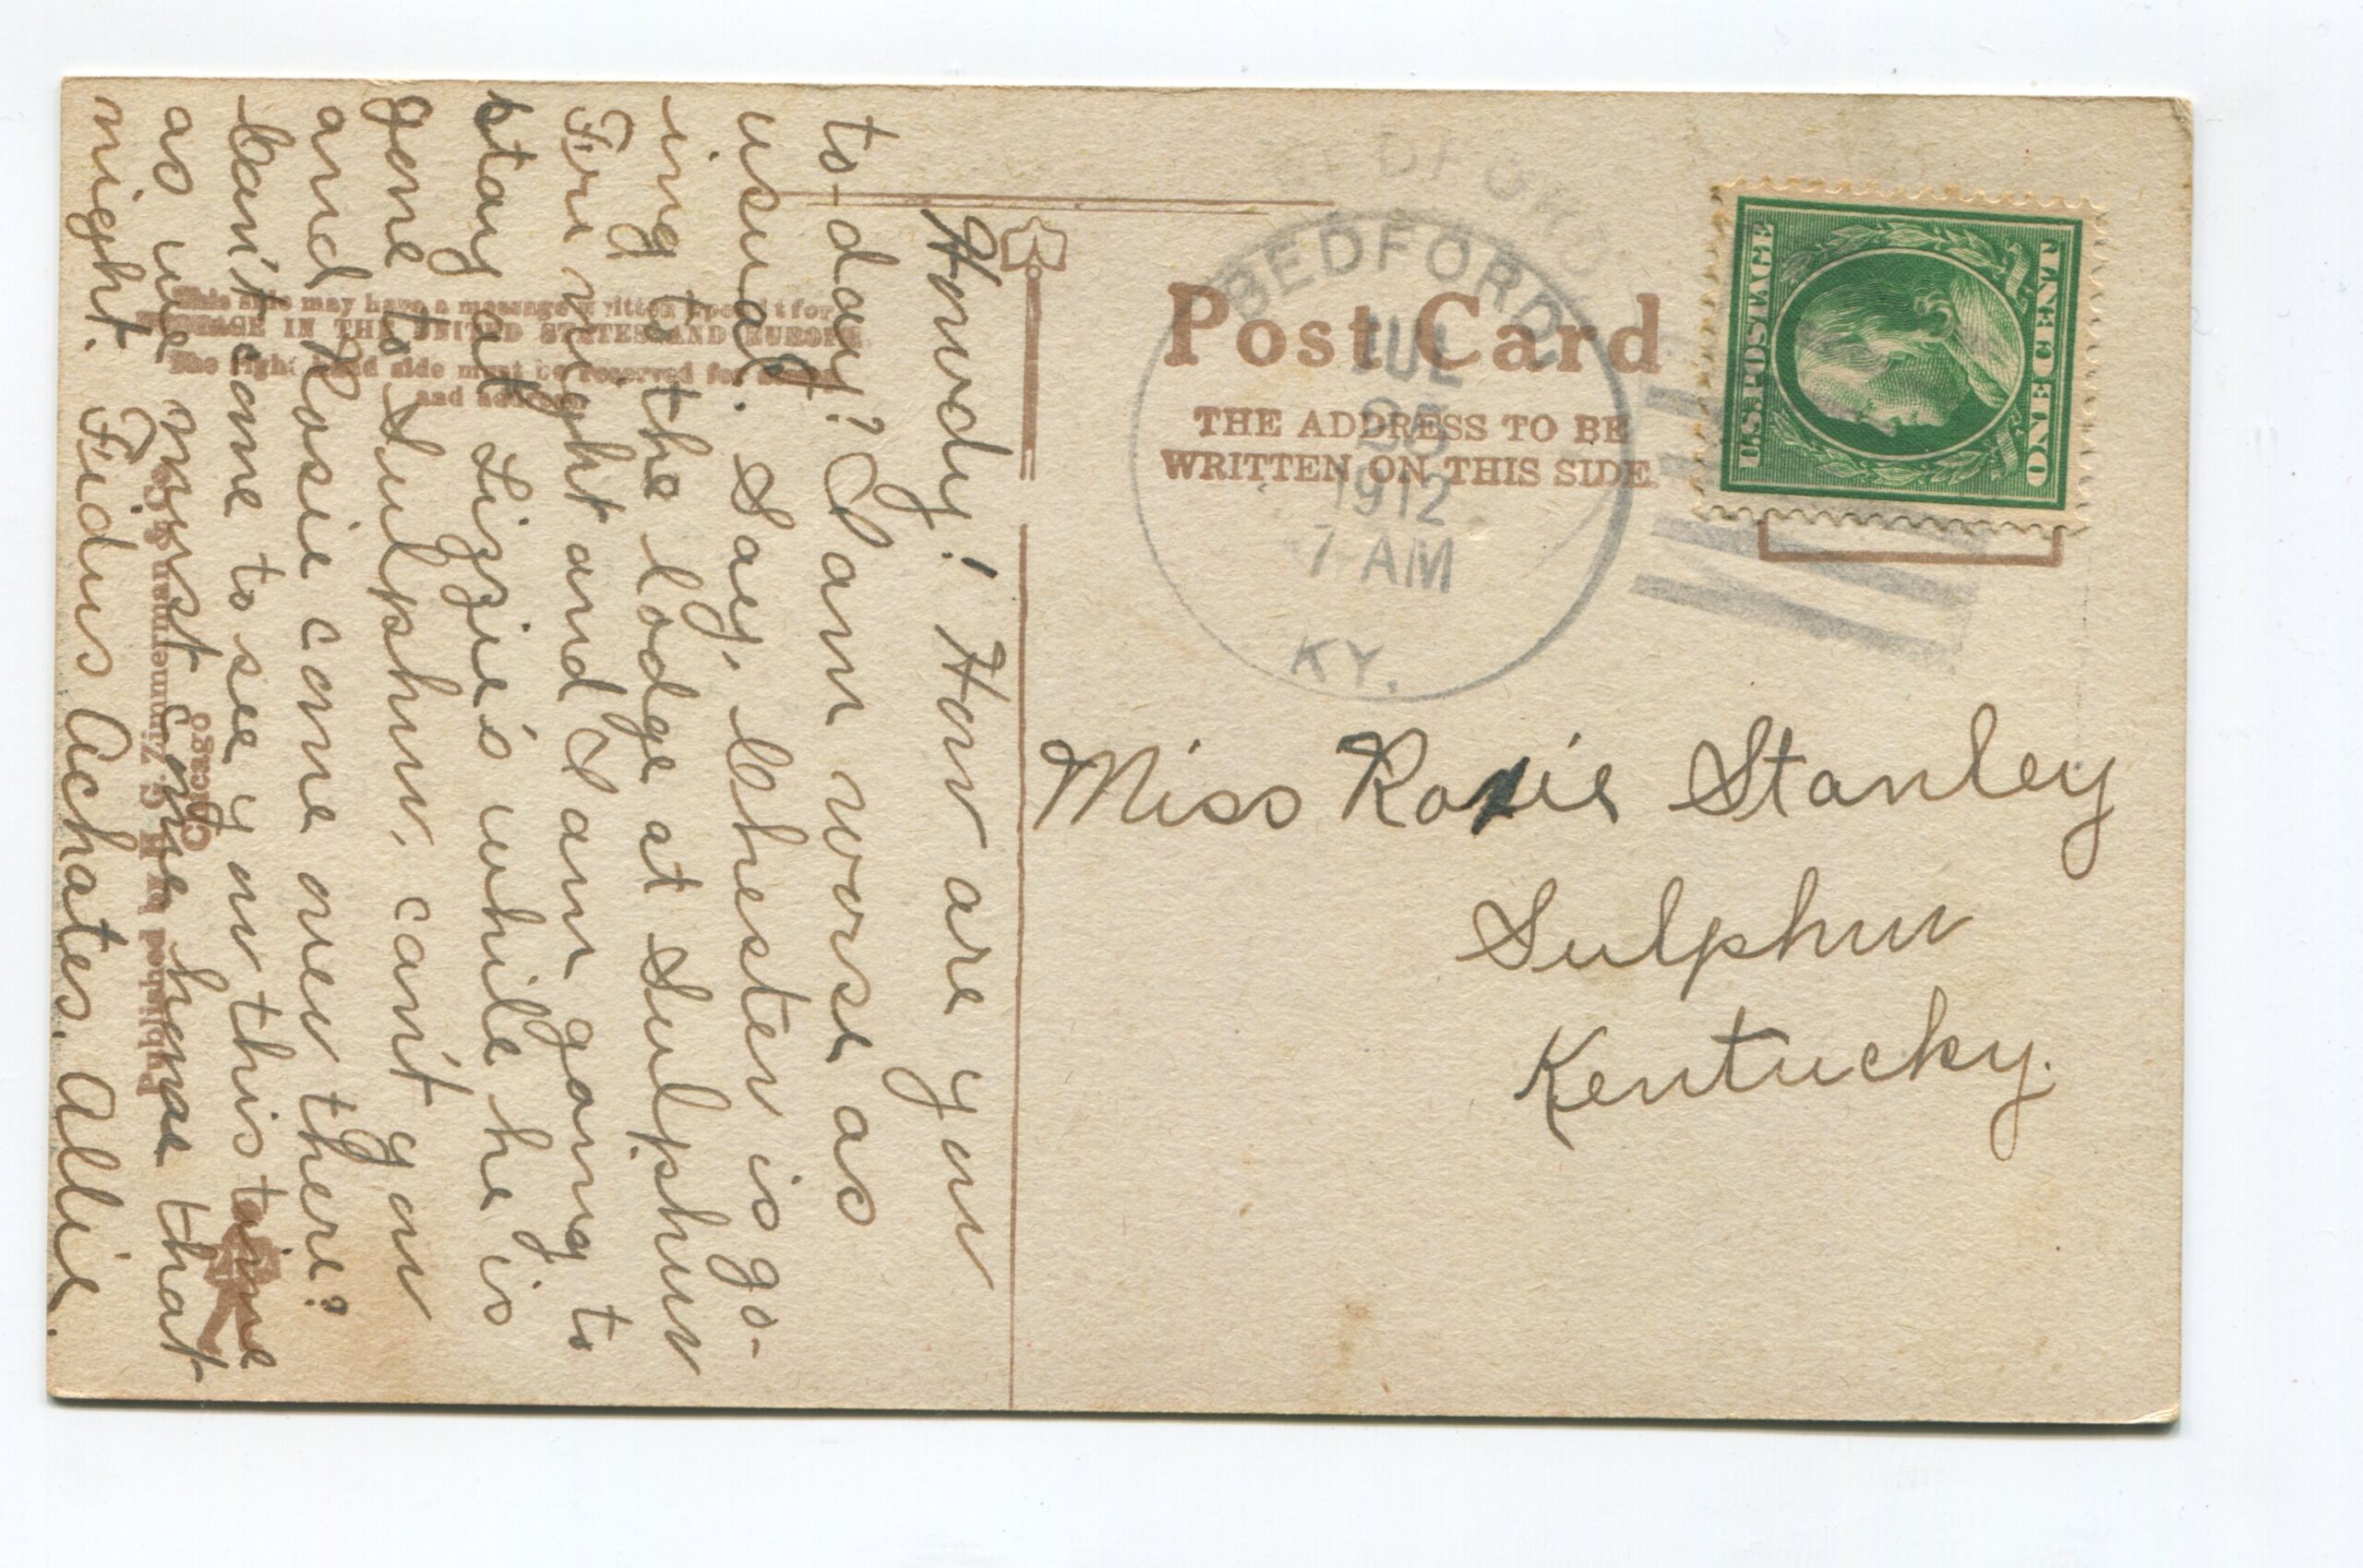 BEDFORD
BEDFORD
JUL
25
1912
7-AM
KY.
U.S. POSTAGE
ONE CENT
Post Card
THE ADDRESS TO BE
WRITTEN ON THIS SIDE
This side may have a message written upon it for
POSTAGE IN THE UNITED STATES AND EUROPE.
The right hand side must be reserved for
and address
Howdy! How are you
to-day? I am worse as
usual. Say, Chester is go-
ing to the lodge at Sulphur
Fri night and I am going to
stay at Lizzie's while he is
gone to Sulphur, can't you
and come over there?
Can't come to see you this time
as we must come home that
night. Fidus Achates. Allie.
Miss Roxie Stanley
Sulphur
Kentucky.
Published by H G Zimmerman & Co
Chicago